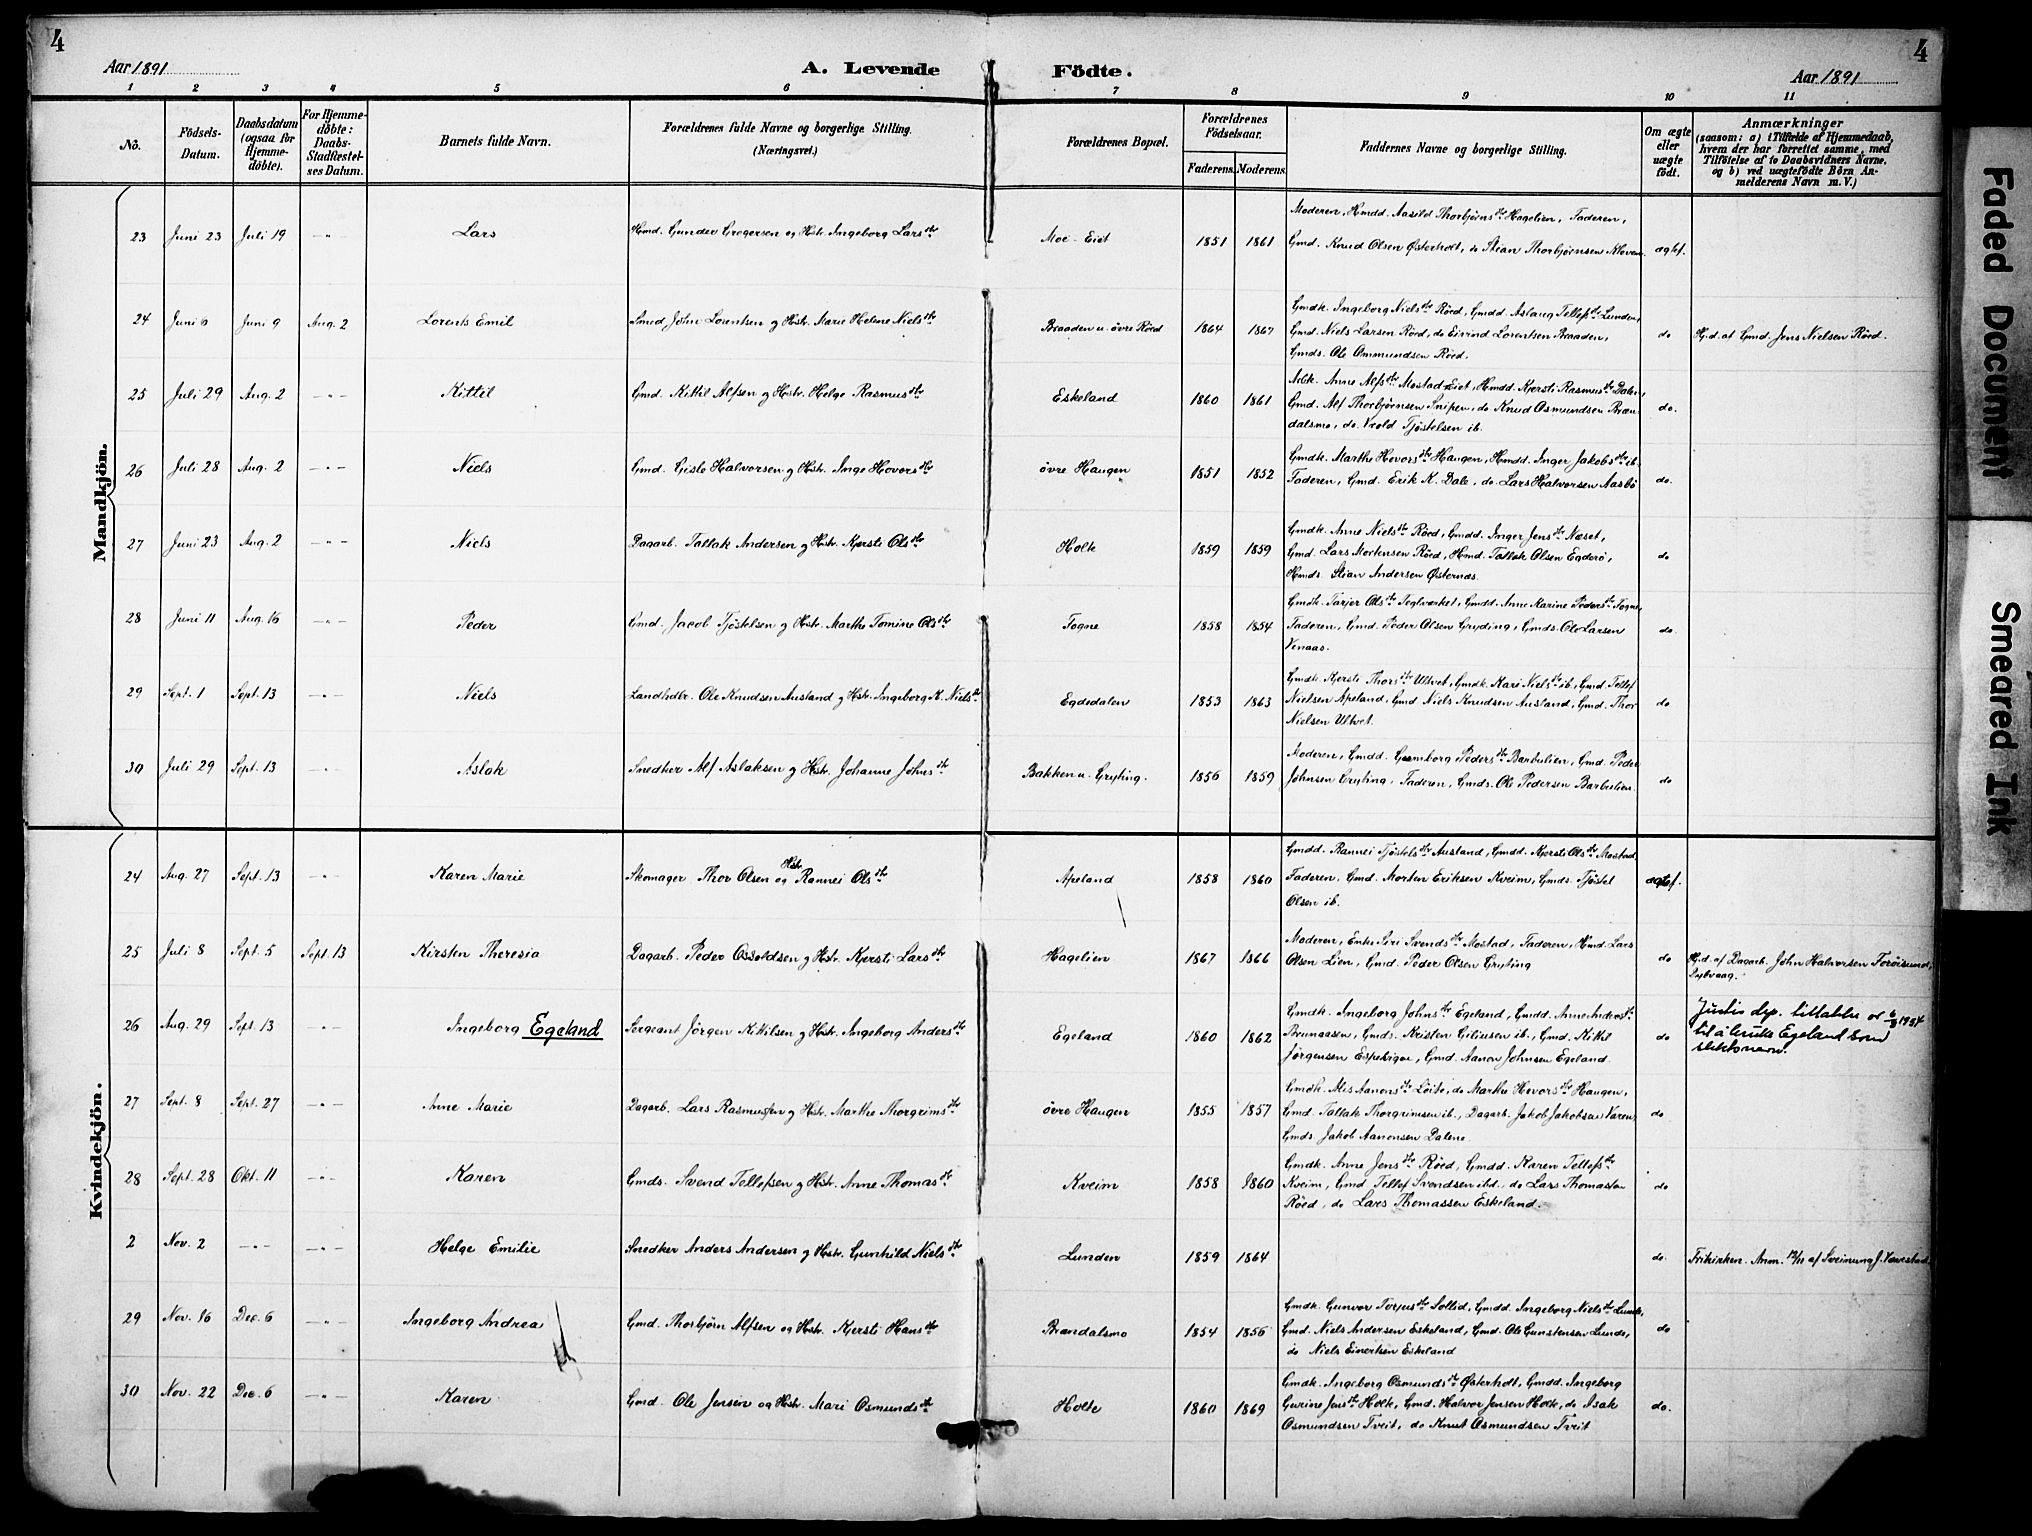 4
4
Aar 1891
A. Levende Födte.
Aar 1891
1 2 3 4 5 6 7 8 9 10 11
No.
Födsels-Datum.
Daabsdatum (ogsaa for Hjemme-döbte).
For Hjemme-döbte: Daabs-Stadfæstel-ses Datum.
Barnets fulde Navn.
Forældrenes fulde Navne og borgerlige Stilling. (Næringsvei.)
Forældrenes Bopæl.
Forældrenes Födselsaar.
Faderens. Moderens.
Faddernes Navne og borgerlige Stilling.
Om ægte eller uægte födt.
Anmærkninger
(saasom: a) i Tilfælde af Hjemmedaab, hvem der har forrettet samme, med Tilföielse af to Daabsvidners Navne, og b) ved uægtefödte Börn An-melderens Navn m. V.)
Mandkjön.
23 Juni 23 Juli 19 -"- Lars Hmd. Gunder Gregersen og Hstr. Ingeborg Larsdtr Moe-Eiet 1851 1861 Moderen, Hmdd. Aasild Thorbjørnsdtr Hagelien, Faderen,
Gmd. Knud Olsen Østerholt, do Stian Thorbjørnsen Kloven. ægtef.
24 Juni 6 Juni 9 Aug. 2 Lorents Emil Smed John Lorentsen og Hstr. Marie Helene Nielsdtr Braaden u. øvre Röed 1864 1867 Gmdk. Ingeborg Nielsdtr Röed, Gmdd. Aslaug Tellefsdtr Lunden,
Gmd. Niels Larsen Röed, do Eivind Lorentsen Braaden,
Gmds. Ole Ommundsen Röed. do Hj.d. af Gmd. Jens Nielsen Röed.
25 Juli 29 Aug. 2 -"- Kittil Gmd. Kittil Alfsen og Hstr. Helge Rasmusdtr Eskeland 1860 1861 Arbk. Anne Alfsdtr Mostad-Eiet, Hmdd. Kjersti Rasmusdtr Dalen,
Gmd. Alf Thorbjørnsen Snipen, do Knud Osmundsen Bræn-
dalsmo, do. Vrold Tjöstelsen ib. do.
26 Juli 28 Aug. 2 -"- Niels Gmd. Gisle Halvorsen og Hstr. Inge Hovorsdtr övre Haugen 1851 1852 Gmdk. Marthe Hovorsdtr Haugen, Hmdd. Inger Jakobsdtr ib.
Faderen, Gmd. Erik K. Dale, do. Lars Halvorsen Aasbö do.
27 Juni 23 Aug. 2 -"- Niels Dagarb. Tallak Andersen og Hstr. Kjersti Olsdtr Holte 1859 1859 Gmdk. Anne Nielsdtr Röed, Gmdd. Inger Jensdtr Næset,
Gmd. Lars Mortensen Röed, Hmd. Tallak Olsen Egderö,
Hmds. Stian Andersen Østernæs. do
28 Juni 11 Aug. 16 -"- Peder Gmd. Jacob Tjöstelsen og Hstr. Marthe Tomine Olsdtr Togne 1858 1854 Gmdk. Tarjer Olsdtr Teglværket, Gmdd. Anne Karine Pedersdtr Togne,
Faderen, Gmd. Peder Olsen Gryting, Gmds. Ole Larsen
Venaas. do.
29 Sept. 1 Sept. 13 -"- Niels Landhdlr. Ole Knudsen Ausland og Hstr. Ingeborg K. Nielsdtr Egdedalen 1853 1863 Gmdk. Kjersti Thorsdtr Ultvet, Gmdk. Kari Nielsdtr ib., Gmd. Tellef
Nielsen Apeland, Gmd Niels Knudsen Ausland, Gmd. Thor
Nielsen Ultvet. do
30 Juli 29 Sept. 13 -"- Aslak Snedker Alf Aslaksen og Hstr. Johanne Johnsdtr Bakken u. Gryting. 1856 1859 Moderen, Gmdd. Gunborg Pedersdtr Barbulien, Gmd. Peder
Johnsen Gryting, Faderen, Gmds. Ole Pedersen Barbulien. do
Kvindekjön.
24 Aug. 27 Sept. 13 -"- Karen Marie Skomager Thor Olsen og Hstr. Rannei Olsdtr Apeland 1858 1860 Gmdd. Rannei Tjöstelsdtr Ausland, Gmdd. Kjersti Olsdtr Mostad,
Faderen, Gmd. Morten Eriksen Kveim, Gmds. Tjöstel
Olsen ib. ægtef.
25 Juli 8 Sept. 5 Sept. 13 Kirsten Theresia Dagarb. Peder Osvoldsen og Hstr. Kjersti Larsdtr Hagelien 1867 1866 Moderen, Enke Siri Svendsdtr Mostad, Faderen, Hmd. Lars
Olsen Lien, Gmd. Peder Olsen Gryting do Hj.d. af Dagarb. John Halvorsen Toröisund,
Dybvaag.
26 Aug. 29 Sept. 13 Ingeborg Egeland Sergeant Jörgen Kittilsen og Hstr. Ingeborg Andersdtr Egeland 1860 1862 Gmdk. Ingeborg Johnsdtr Egeland, Gmdd. Anne Andersdtr
Brunaasen, Gmds. Kristen Ciliusen ib., Gmd. Kittil
Jörgensen Espekigen, Gmd. Aanon Johnsen Egeland. do Justis dep. tillatelse av 6/8 1954
til å bruke Egeland som
slektsnavn.
27 Sept. 8 Sept. 27 -"- Anne Marie Dagarb. Lars Rasmussen og Hstr. Marthe Thorgrimsdtr övre Haugen 1855 1857 Gmdk. Alis Aanonsdtr Löite, do Marthe Hovorsdtr Haugen,
Gmd. Tallak Thorgrimsen ib., Dagarb. Jakob Jakobsen Varen,
Gmds. Jakob Aanonsen Dalene. do
28 Sept. 28 Okt. 11 -"- Karen Gmds. Svend Tellefsen og Hstr. Anne Thomasdtr Kveim 1858 1860 Gmdk. Anne Jensdtr Röed, Gmdd. Karen Tellefsdtr
Kveim, Gmd Tellef Svendsen ibd., do Lars Thomassen
Röed, do Lars Thomassen Eskeland. do
2 Nov. 2 -"- -"- Helge Emilie Snedker Anders Andersen og Hstr. Gunhild Nielsdtr Lunden 1859 1864 do. Frikirken. Anm. 12/11 af Sveinung J. Vævestad.
29 Nov. 16 Dec. 6 -"- Ingeborg Andrea Gmd. Thorbjörn Alfsen og Hstr. Kjersti Hansdtr Brændalsmo 1854 1856 Gmdk. Gunvor Torjusdtr Sollid, Gmdd. Ingeborg Nielsdtr Lunde,
Gmd. Niels Andersen Eskeland, Gmd. Ole Gunstensen Lunde,
do Niels Einertsen Eskeland do
30 Nov. 22 Dec. 6 -"- Karen Gmd. Ole Jensen og Hstr. Mari Osmundsdtr Holte 1860 1869 Gmdk. Ingeborg Osmundsdtr Østerholt, Gmdd. Ingeborg
Gurine Jensdtr Holte, Gmd. Halvor Jensen Holte, do Isak
Osmundsen Tveit, do Knut Osmundsen Tveit do.
Faded Document
Smeared Ink